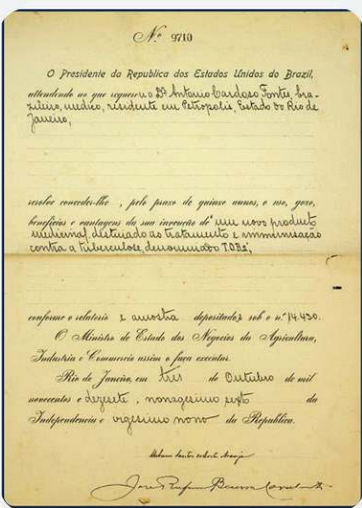 Nº 9710
O Presidente da Republica dos Estados Unidos do Brazil,
attendendo ao que requereu o Dr Antonio Cardoso Fontes, bra-
zileiro, medico, residente em Petropolis, Estado do Rio de
Janeiro,
resolve conceder-lhe, pelo prazo de quinze annos, o uso, gozo,
beneficios e vantagens da sua invenção de "um novo producto
medicinal, destinado ao tratamento e immunisação
contra a tuberculose, denominado
conforme o relatorio e amostra depositados sob o nº 14.430.
O Ministro de Estado dos Negocios da Agricultura,
Industria e Commercio assim o faça executar.
Rio de Janeiro, em tres de Outubro de mil
novecentos e dezesete, nonagesimo sexto da
Independencia e vigesimo nono da Republica.